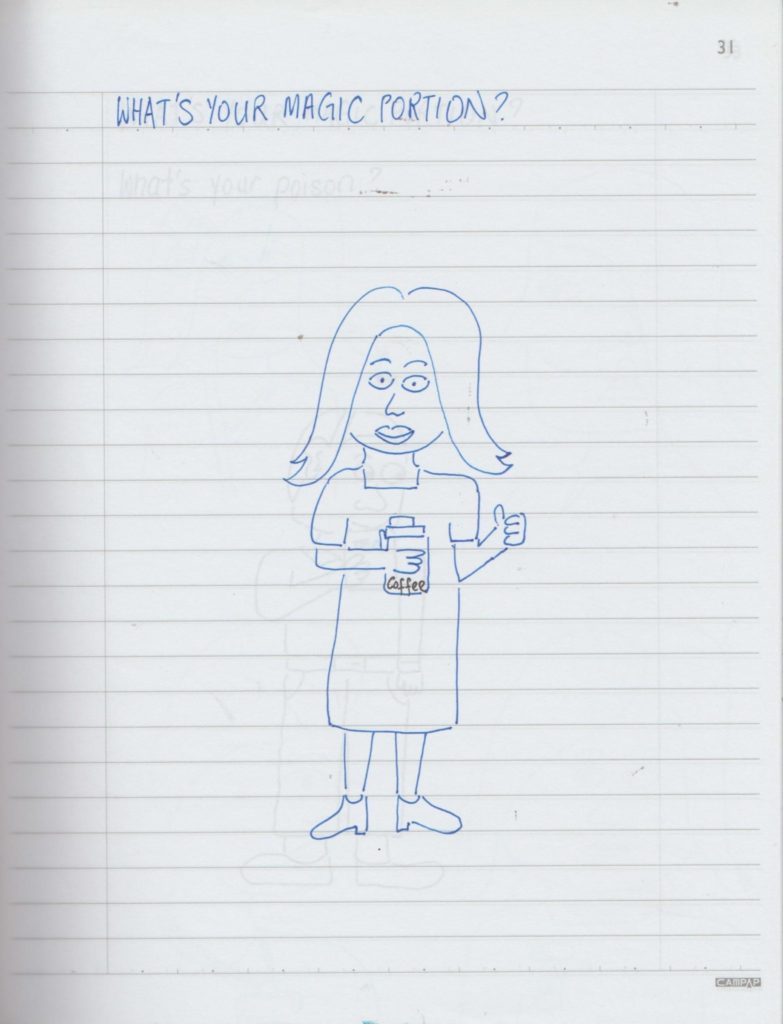 31
WHAT'S YOUR MAGIC PORTION?
What's your poison?
Coffee
CAMPAP